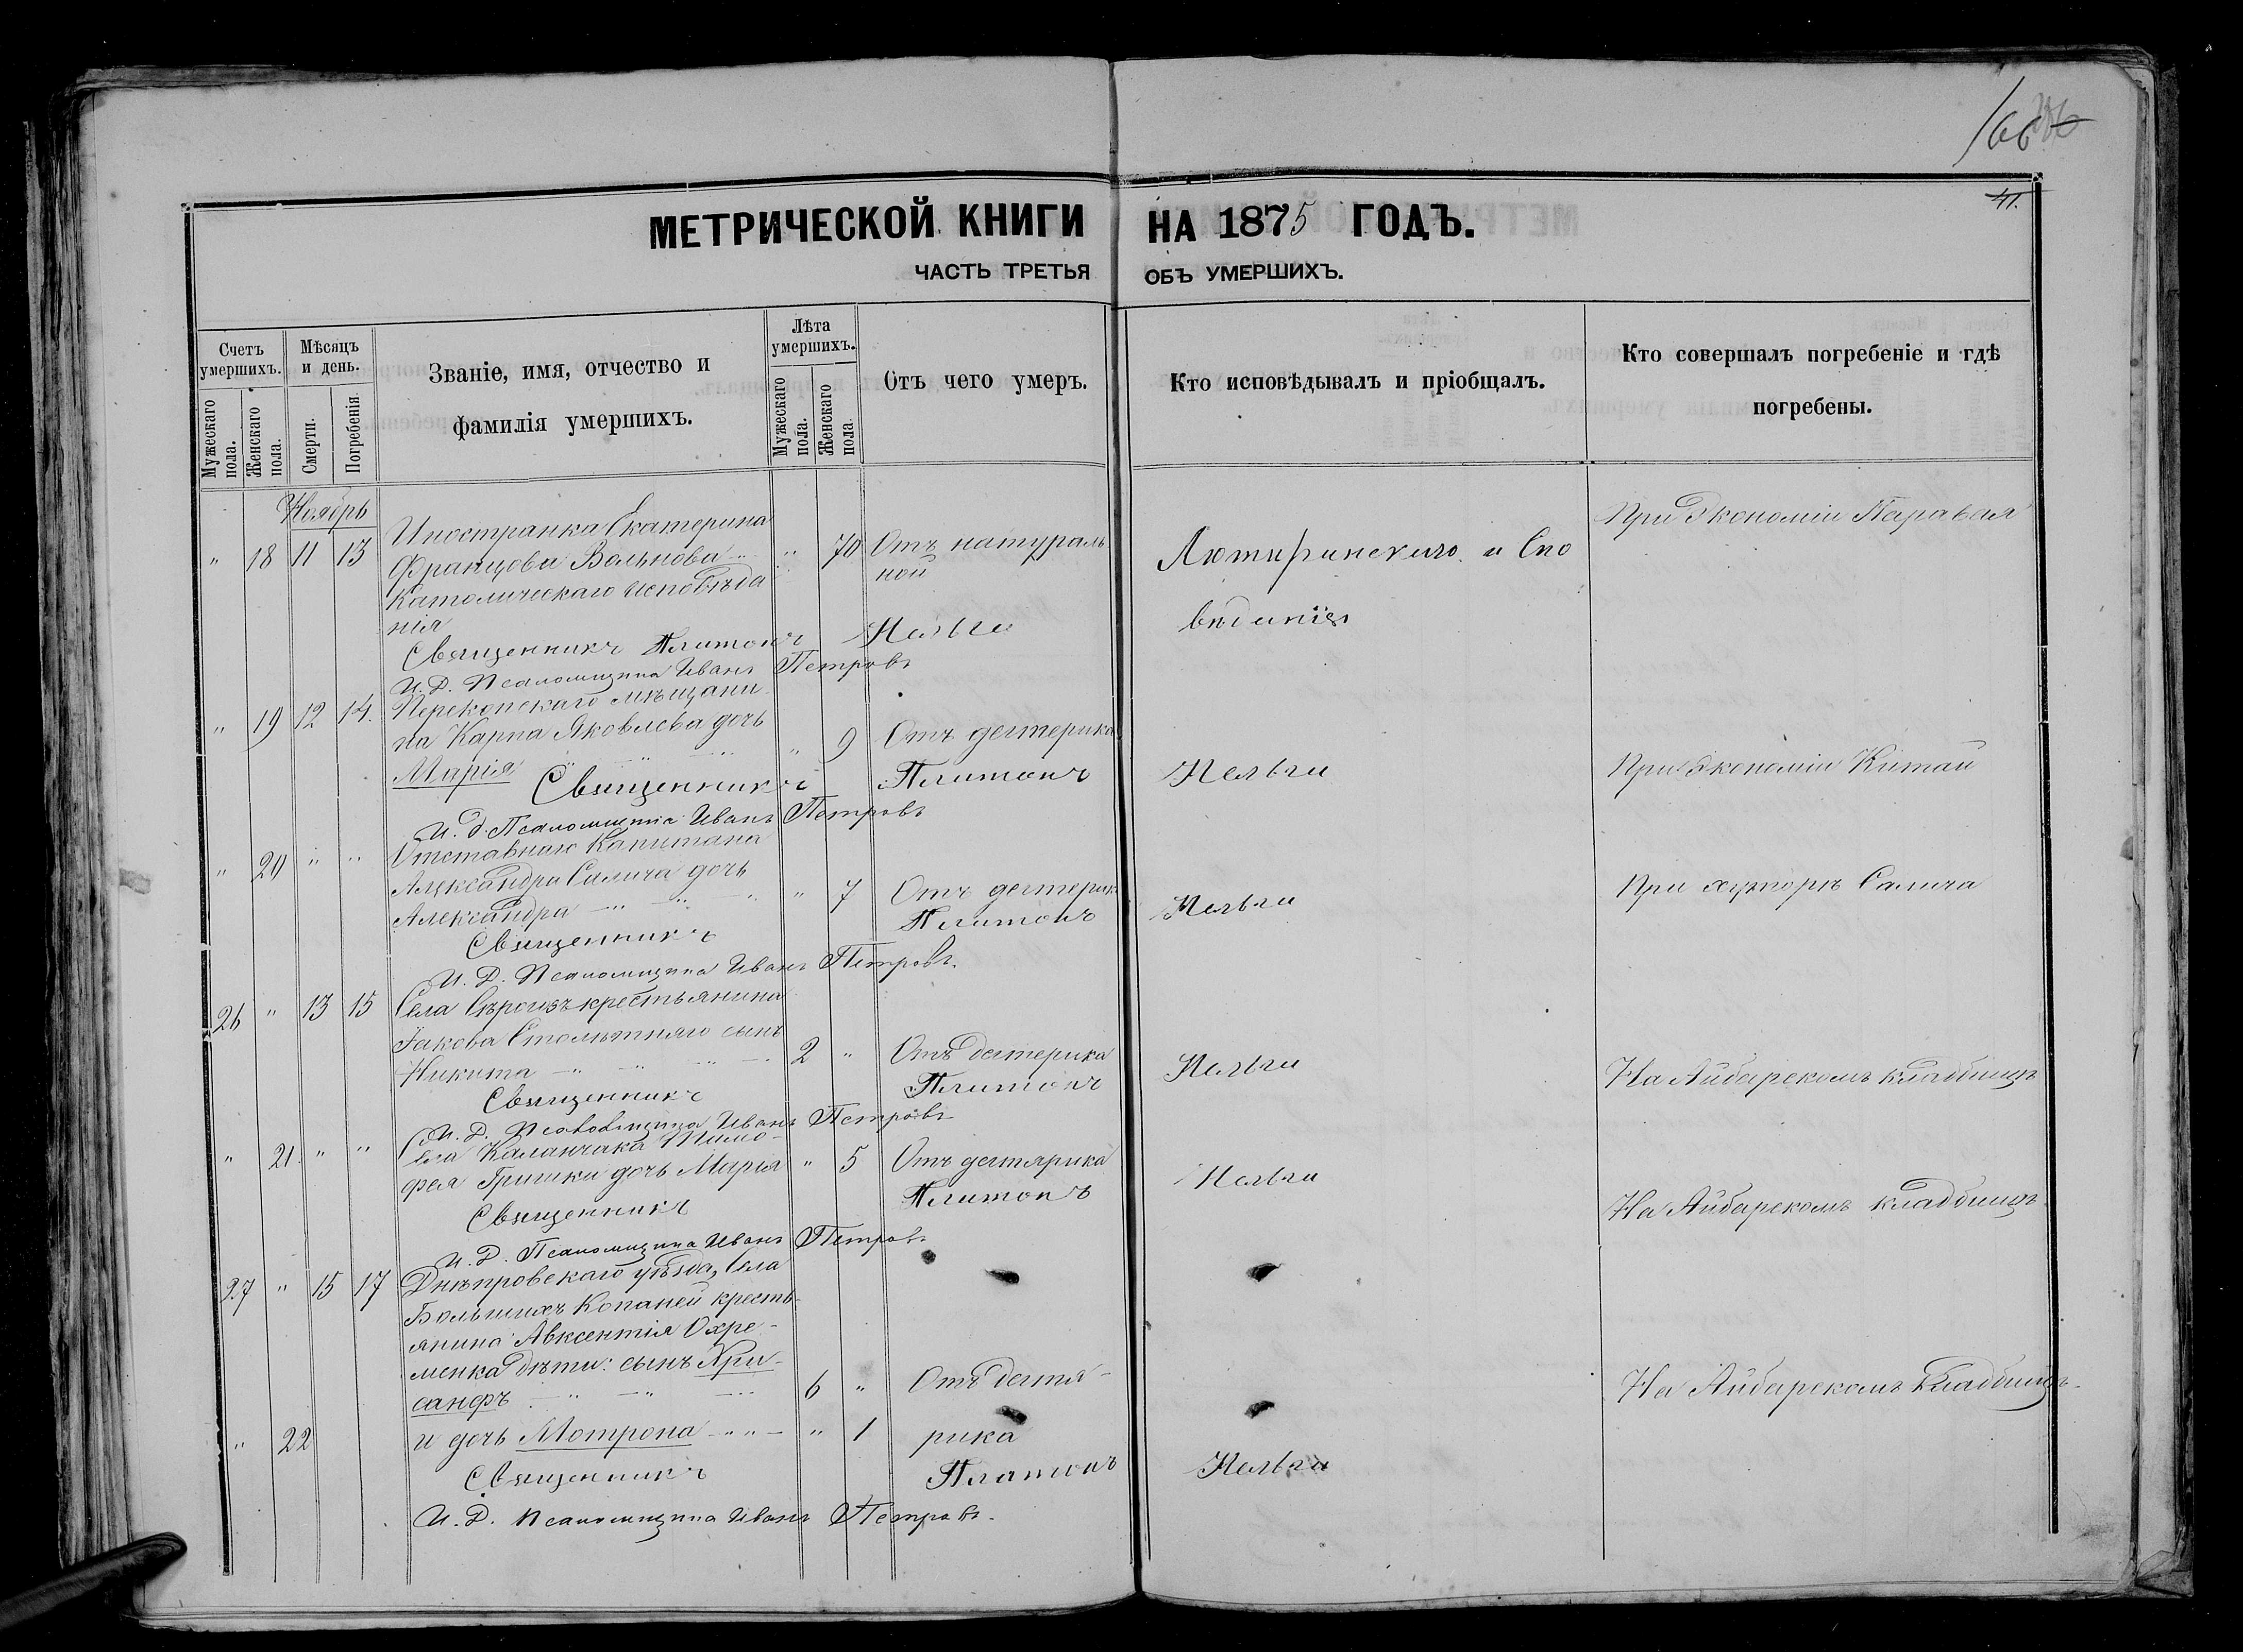 166
41.
МЕТРИЧЕСКОЙ КНИГИ НА 1875 ГОДЪ.
ЧАСТЬ ТРЕТЬЯ ОБЪ УМЕРШИХЪ.
Счетъ умершихъ.
Мужескаго пола.
Женскаго пола.
Мѣсяцъ и день.
Смерти.
Погребенія.
Званіе, имя, отчество и
фамилія умершихъ.
Лѣта умершихъ.
Мужескаго пола.
Женскаго пола.
Отъ чего умеръ.
Кто исповѣдывалъ и пріобщалъ.
Кто совершалъ погребеніе и гдѣ
погребены.
Ноябрь
" 18 11 13 Иностранка Екатерина
Францова Вольнова " 70 Отъ натураль
ной
Католическаго исповѣда
нія
Лютиринскиго и Спо
видинія
При Экономіи Паравая
Священникъ Платонъ
И. Д. Псаломщика Иванъ Петровъ
" 19 12 14. Перекопскаго мѣщани
на Карпа Яковлева дочь
Марія " 9 Отъ дегтерика
При Экономіи Китай
Священникъ Платонъ
И. д. Псаломщика Иванъ Петровъ
" 20 " " Отставнаго Капитана
Александра Салича дочь
Александра " 7 Отъ дегтерик
При хуторѣ Салича
Священникъ Платонъ
И. Д. Псаломщика Иванъ Петровъ.
26 " 13 15 Села Сѣрогизъ крестьянина
Іакова Столѣтняго сынъ
Никита 2 " Отъ дегтерика
На Айбарскомъ кладбищѣ
Священникъ Платонъ
И. Д. Псаломщика Иванъ Петровъ
" 21. " " Села Каланчака Тимо-
фея Гришки дочь Марія " 5 Отъ дегтярика
На Айбарскомъ кладбищѣ
Священникъ Платонъ
И. Д. Псаломщика Иванъ Петровъ
27 " 15 17 Днѣпровскаго уѣзда, Села
Большихъ Копаней кресть-
янина Авксентія Охре-
менка дѣти: сынъ Хри-
санфъ 6 " Отъ дегтя-
На Айбарскомъ кладбищѣ
" 22 и дочь Мотрона " 1 рика
Священникъ Платонъ
И. Д. Псаломщика Иванъ Петровъ.